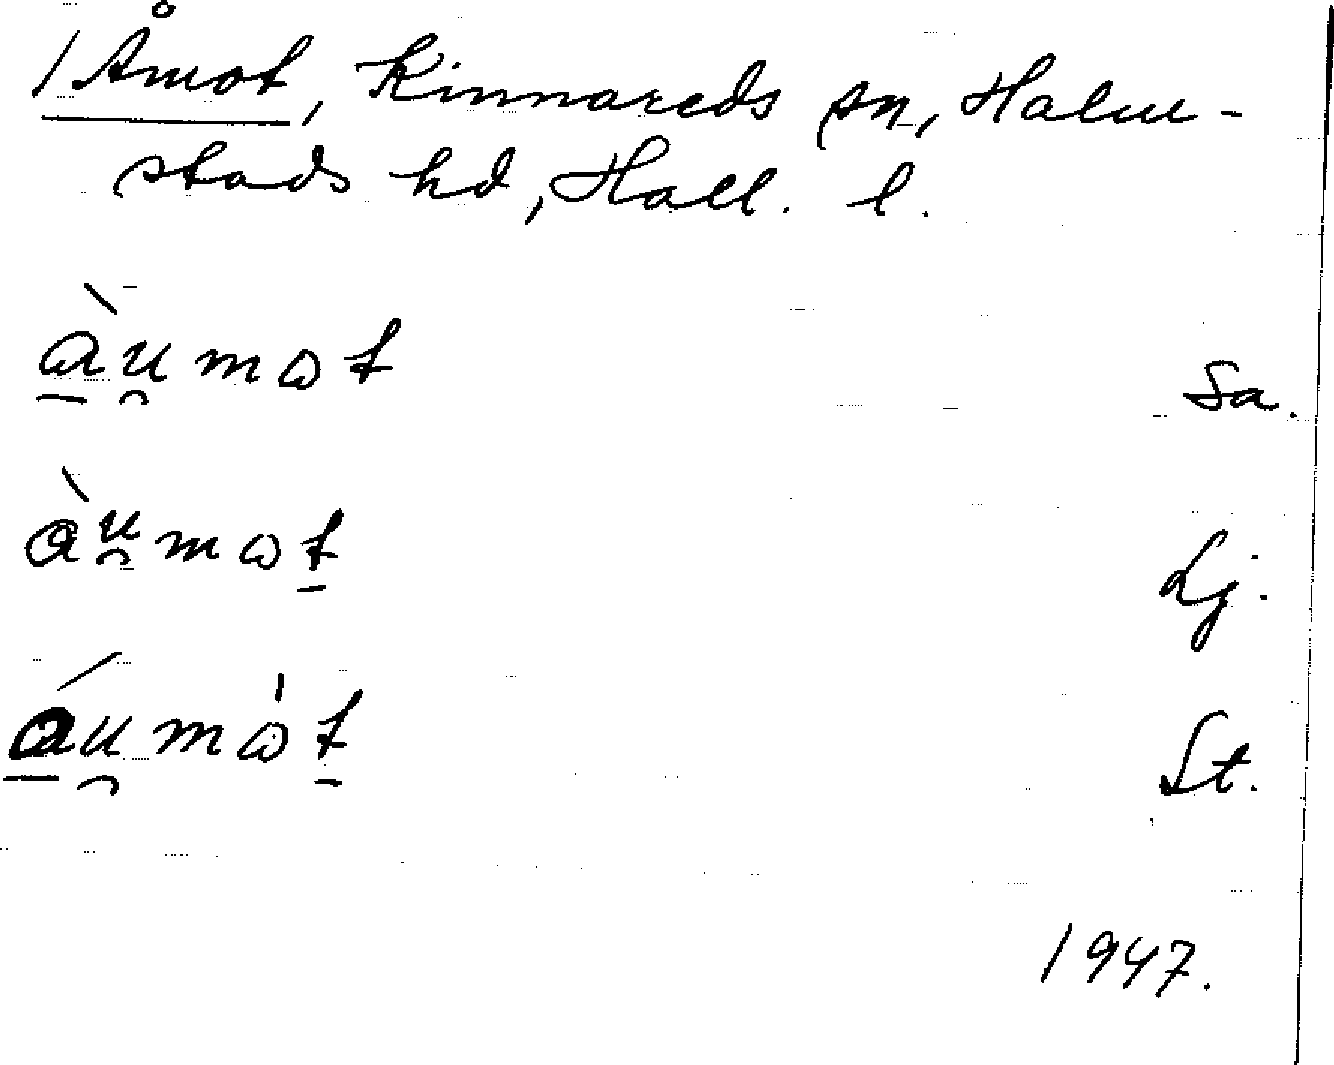 / Åmot, Kinnareds sn, Halm-
stads hd, Hall. l.
a̠̍̀u̯mɷt Sa.
àu̯mɷt̠ Lj.
á̠u̯mɷ̍t̠ St.
1947.